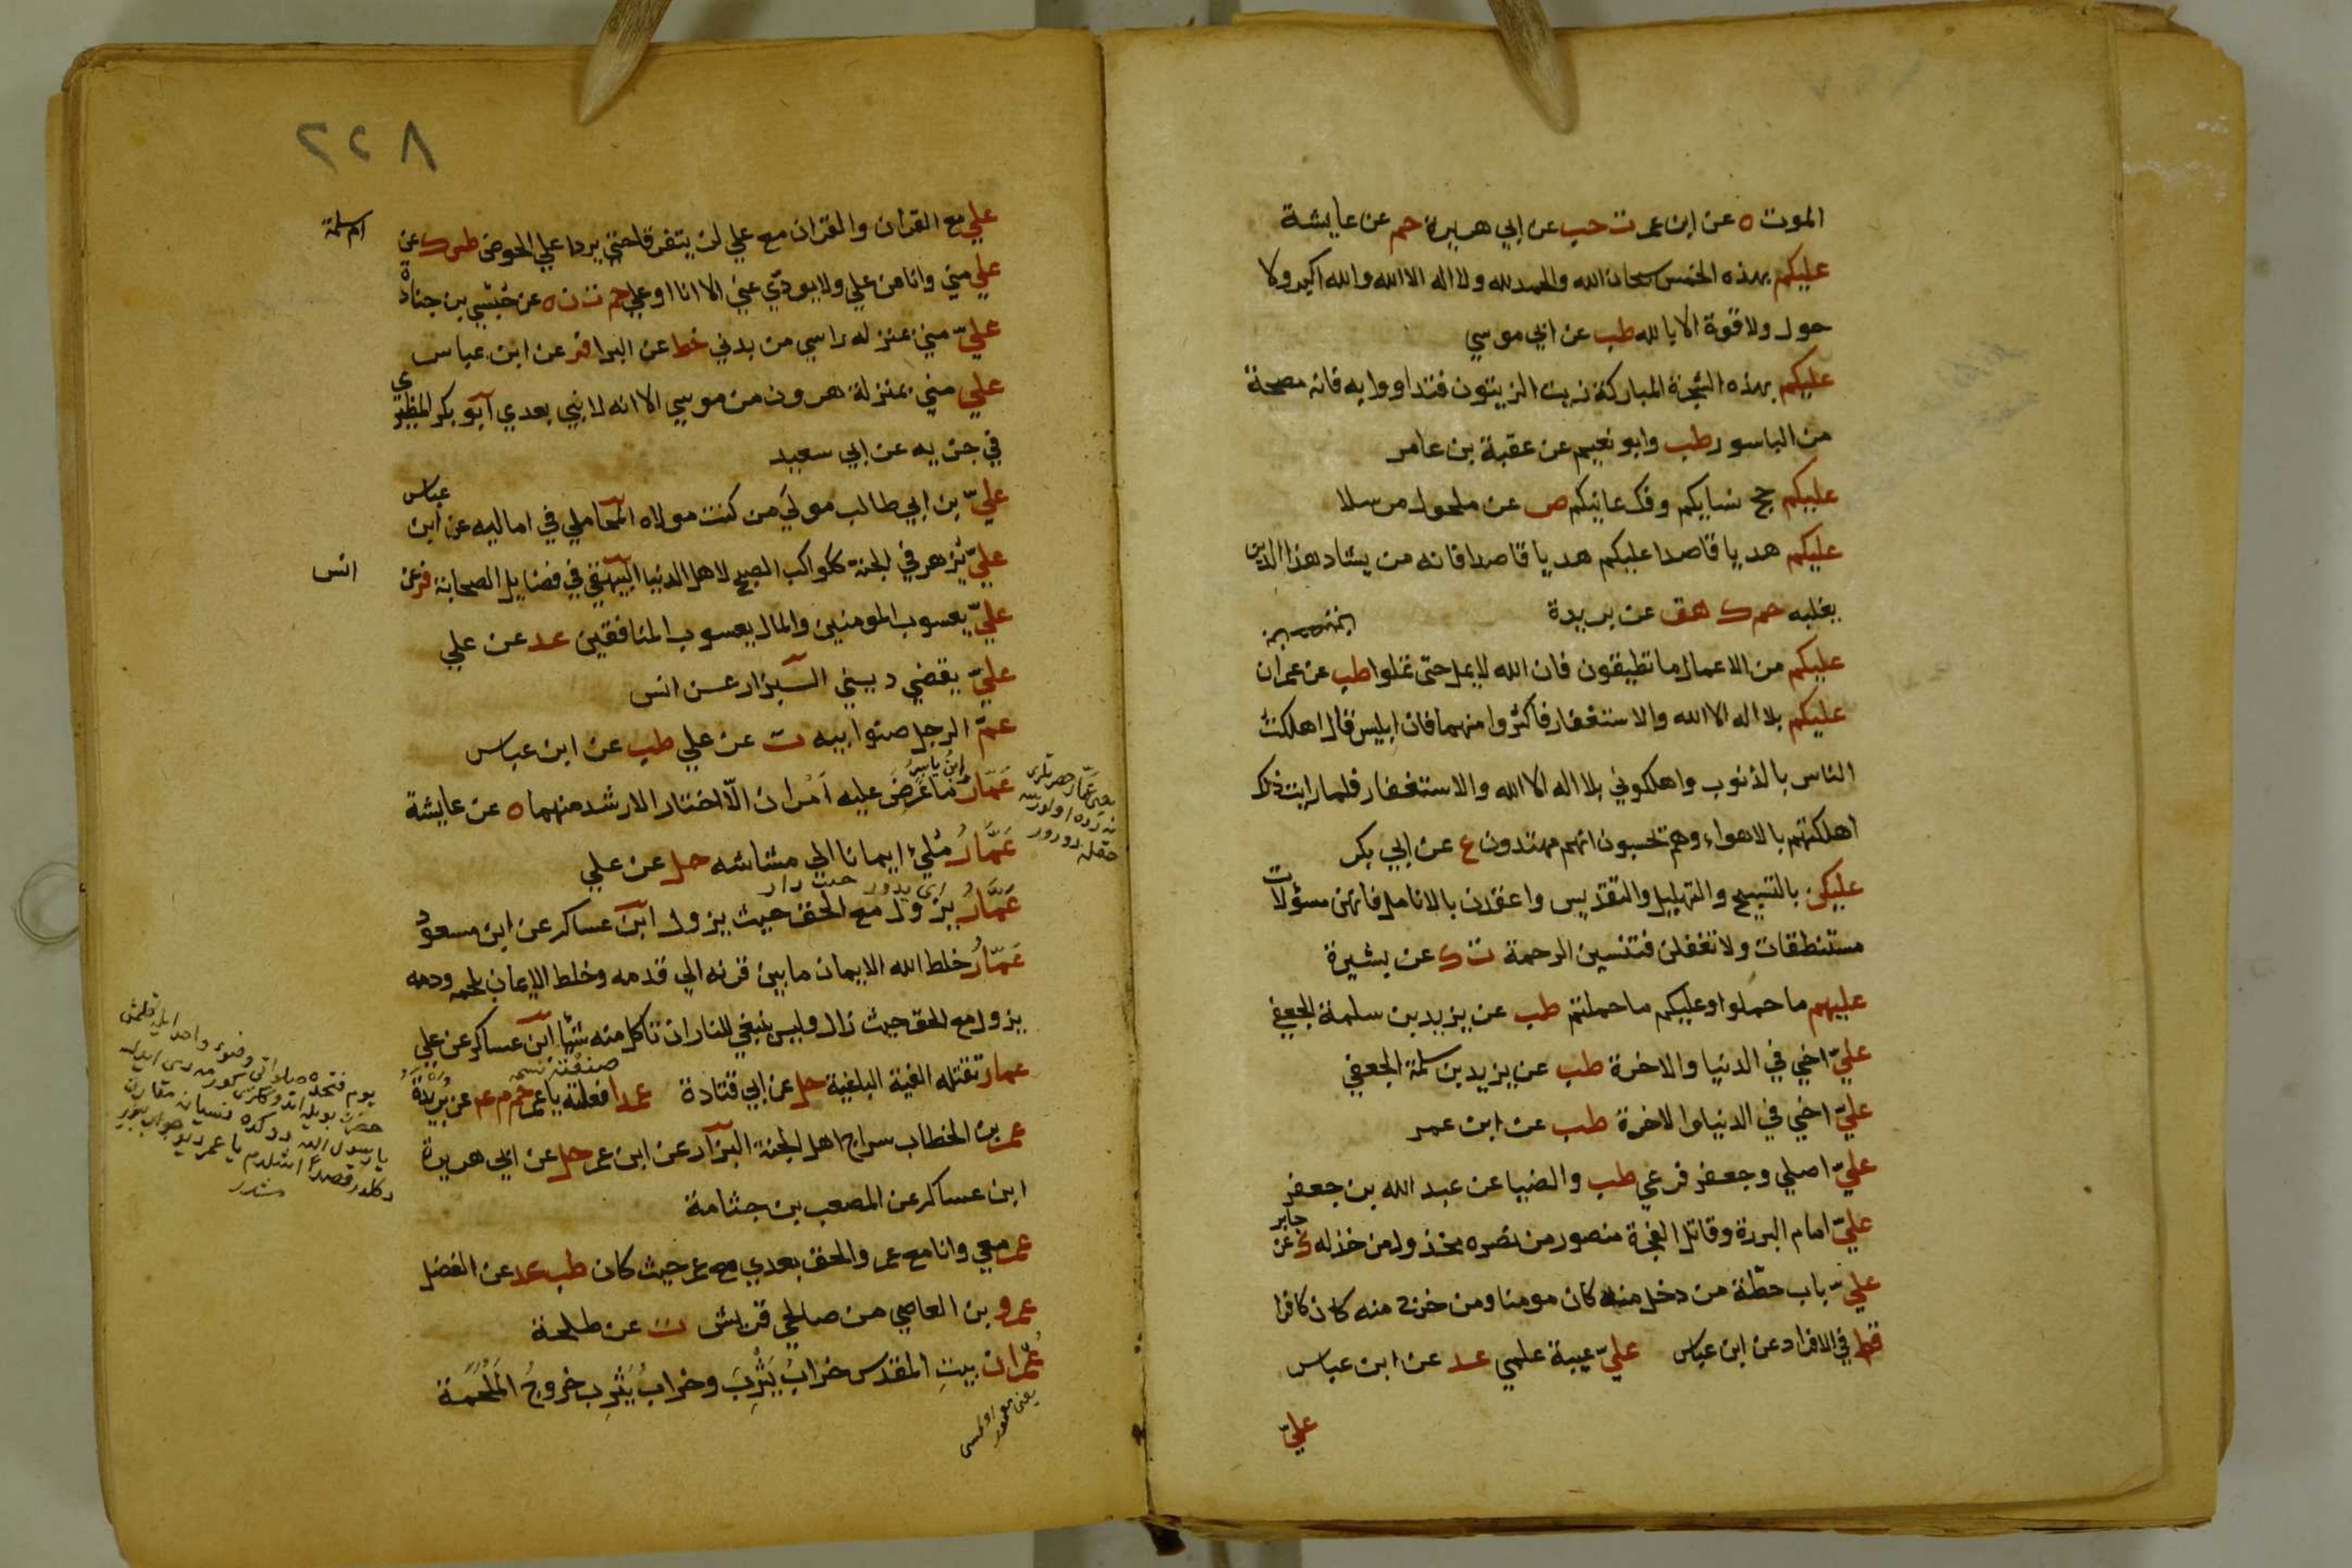 الموت ه عن ابن عمر ت حب عن ابي هريرة حم عن عايشة
عليكم بهذه الخمس سبحان الله والحمد لله ولا اله الا الله والله اكبر ولا
حول ولا قوة الا بالله طب عن ابي موسي
عليكم بهذه الشجرة المباركة زيت الزيتون فتداووا به فانه مصحة
من الباسور طب وابو نعيم عن عقبة بن عامر
عليكم حج نسايكم وفك عانيكم ص عن مكحول مرسلا
عليكم هديا قاصدا عليكم هديا قاصدا فانه من يشاد هذا الدين
يغلبه حم ك هق عن بريدة
عليكم من الاعمال ما تطيقون فان الله لا يمل حتى تملوا طب عن عمران
عليكم بلا اله الا الله والاستغفار فاكثروا منهما فان ابليس قال اهلكت
الناس بالذنوب واهلكوني بلا اله الا الله والاستغفار فلما رايت ذلك
اهلكتهم بالاهواء وهم يحسبون انهم مهتدون ع عن ابي بكر
عليكن بالتسبيح والتهليل والتقديس واعقدن بالانامل فانهن مسؤلات
مستنطقات ولا تغفلن فتنسين الرحمة ت ك عن يشيرة
عليهم ما حملوا وعليكم ما حملتم طب عن يزيد بن سلمة الجعفي
عليّ اخي في الدنيا والاخرة طب عن يزيد بن سلمة الجعفي
عليّ اخي في الدنيا والاخرة طب عن ابن عمر
عليّ اصلي وجعفر فرعي طب والضيا عن عبد الله بن جعفر
عليّ امام البررة وقاتل الفجرة منصور من نصره مخذول من خذله ك عن جابر
عليّ باب حطّة من دخل منه كان مومنا ومن خرج منه كان كافرا
قط في الافراد عن ابن عباس عليّ عيبة علمي عد عن ابن عباس
عليّ
٢٢٨
علي مع القران والقران مع علي لن يتفرقا حتي يردا علي الحوض طس ك عن ام سلمة
علي مني وانا من علي ولا يودّي عني الا انا او علي حم ت ن ه عن حبشي بن جنادة
عليّ مني بمنزله راسي من بدني خط عن البرا فر عن ابن عباس
علي مني بمنزلة هرون من موسي الا انه لا نبي بعدي ابو بكر المطيري
في جزيه عن ابي سعيد
عليّ بن ابي طالب مولي من كنت مولاه المحاملي في اماليه عن ابن عباس
عليّ يزهر في الجنة ككواكب الصبح لاهل الدنيا البيهقي في فضايل الصحابة فر عن انس
عليّ يعسوب المومنين والمال يعسوب المنافقين عد عن علي
عليّ يقضي ديني البزار عن انس
عمّ الرجل صنوا ابيه ت عن علي طب عن ابن عباس
عَمّار ابن ياسر ما عُرِضَ عليه اَمْران الّا اختار الارشد منهما ه عن عايشة
عَمَّارُ مُلِيءَ ايمانا الي مشاشه حل عن علي
عَمَّارُ يزول مع الحق حيث يزول ابن عساكر عن ابن مسعود
عَمّارُ خلط الله الايمان ما بين قرنه الي قدمه وخلط الايمان بلحمه ودمه
يزول مع الحق حيث زال وليس ينبغي للنار ان تاكل منه شيا ابن عساكر عن علي
عمار تقتله الفية الباغية حل عن ابي قتادة عمدا فعلته يا عمر حم م عم عن بريدة
عمر بن الخطاب سراج اهل الجنة البزار عن ابن عمر حل عن ابي هريرة
ابن عساكر عن المصعب بن جثامة
عمر معي وانا مع عمر والحق بعدي مع عمر حيث كان طب عد عن الفضل
عمرو بن العاصي من صالحي قريش ت عن طلحة
عُمْران بيتِ المقدس خرابُ يَثْرِبَ وخرابُ يَثْرِب خروجُ المَلْحَمَة